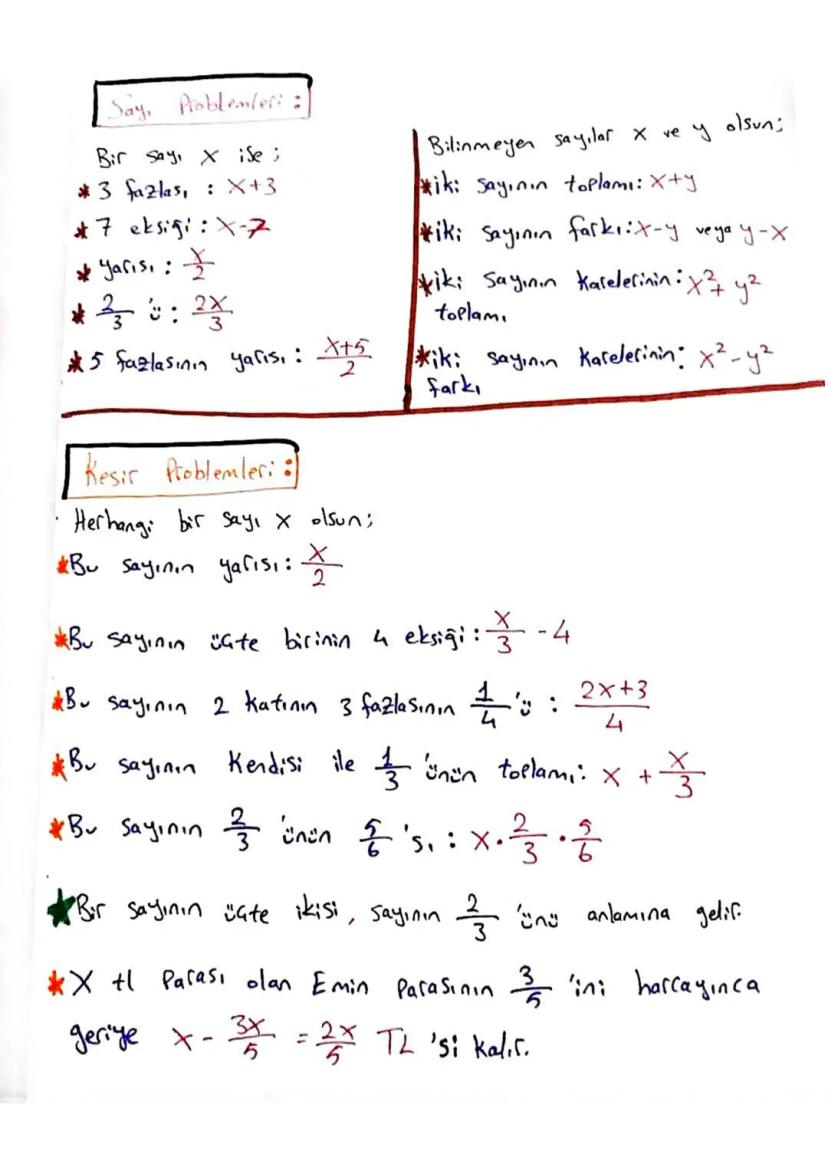 Sayı Problemleri :
Bir sayı x ise ;
* 3 fazlası : x+3
* 7 eksiği : x-7
* yarısı : x/2
* 2/3 'ü : 2x/3
* 5 fazlasının yarısı : x+5/2
Bilinmeyen sayılar x ve y olsun;
* iki sayının toplamı: x+y
* iki sayının farkı: x-y veya y-x
* iki sayının karelerinin : x²+y²
toplamı
* iki sayının karelerinin: x²-y²
farkı
Kesir Problemleri :
Herhangi bir sayı x olsun;
* Bu sayının yarısı : x/2
* Bu sayının üçte birinin 4 eksiği : x/3 - 4
* Bu sayının 2 katının 3 fazlasının 1/4 'ü : 2x+3/4
* Bu sayının Kendisi ile 1/3 'ünün toplamı: x + x/3
* Bu sayının 2/3 'ünün 5/6 'sı : x . 2/3 . 5/6
★ Bir sayının üçte ikisi, sayının 2/3 'ünü anlamına gelir.
* X tl Parası olan Emin Parasının 3/5 'ini harcayınca
geriye x - 3x/5 = 2x/5 TL 'si kalır.